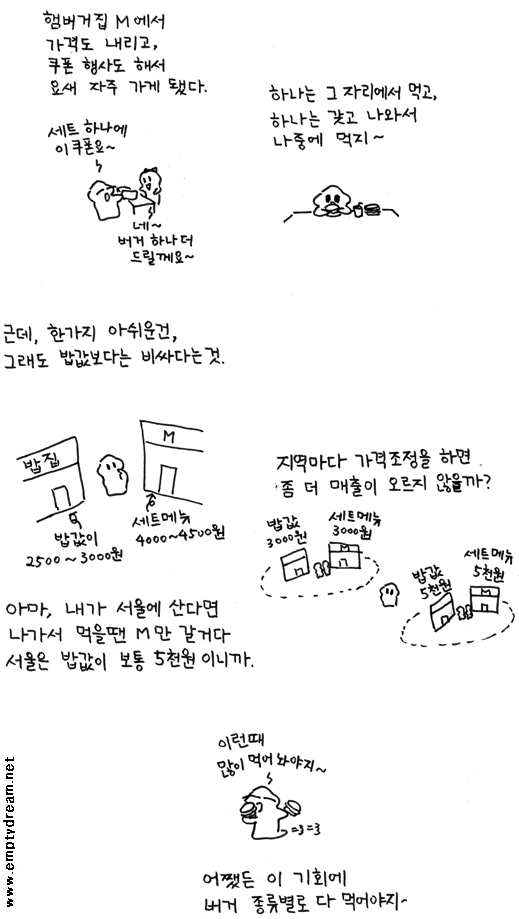 햄버거집 M에서
가격도 내리고,
쿠폰 행사도 해서
요새 자주 가게 됐다.
세트 하나에
이 쿠폰요~
네~
버거 하나 더
드릴께요~
하나는 그 자리에서 먹고,
하나는 갖고 나와서
나중에 먹지~
근데, 한가지 아쉬운건,
그래도 밥값보다는 비싸다는것.
밥집
M
밥값이
2500~3000원
세트메뉴
4000~4500원
지역마다 가격조정을 하면
좀 더 매출이 오르지 않을까?
밥값
3000원
세트메뉴
3000원
M
밥값
5천원
세트메뉴
5천원
M
아마, 내가 서울에 산다면
나가서 먹을땐 M만 갈거다
서울은 밥값이 보통 5천원이니까.
이런때
많이 먹어 놔야지~
=3=3
어쨌든 이 기회에
버거 종류별로 다 먹어야지~
www.emptydream.net